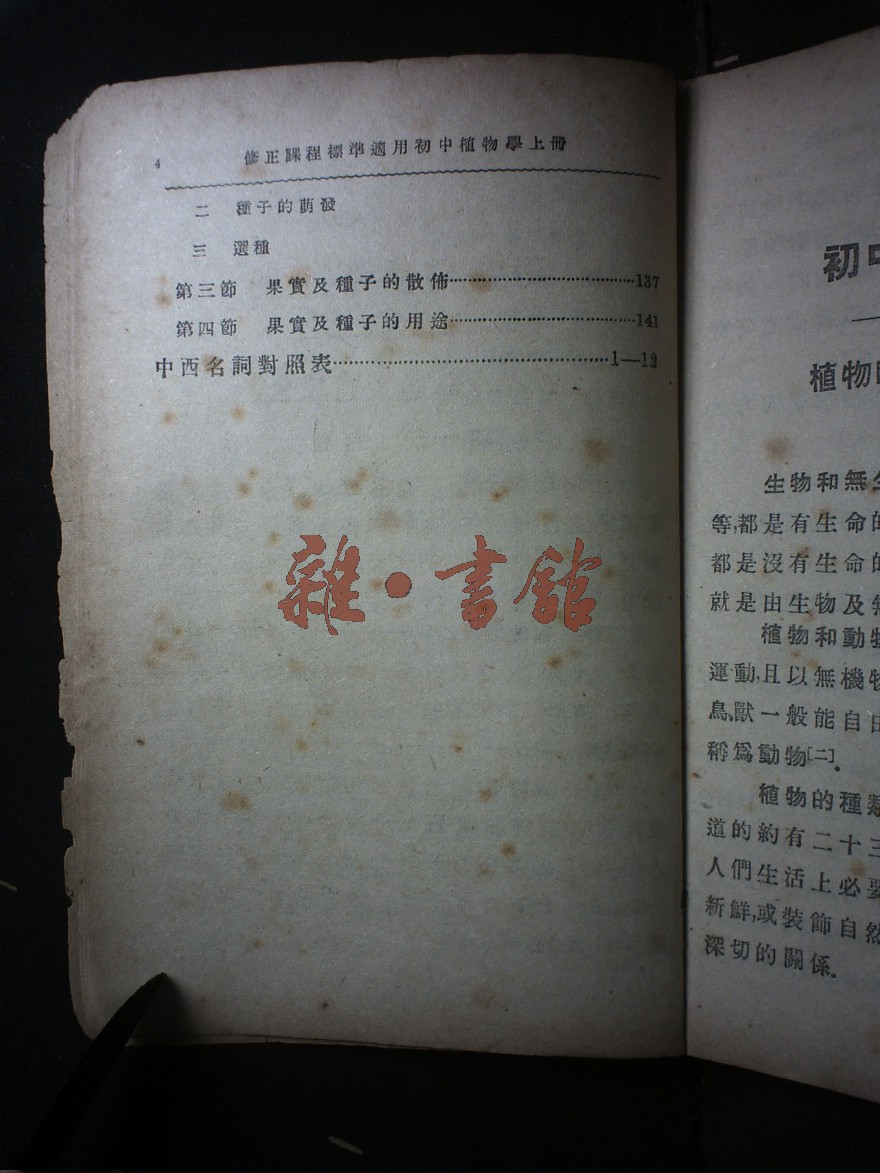 4 修正課程標準適用初中植物學上冊
二 種子的萌發
三 選種
第三節 果實及種子的散佈……………………………137
第四節 果實及種子的用途……………………………141
中西名詞對照表…………………………………………1—13
雜・書館
初中
植物
生物和無生
等,都是有生命的
都是沒有生命的
就是由生物及無
植物和動物
運動,且以無機物
鳥、獸一般能自由
稱爲動物[二]。
植物的種類
道的約有二十三
人們生活上必要
新鮮,或裝飾自然
深切的關係。